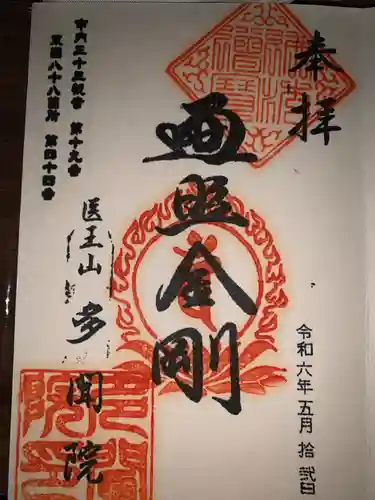 奉拝
令和六年五月拾弐日
遍照金剛
三十三観音 第十九番
八十八箇所 第四十四番
医王山 多聞院